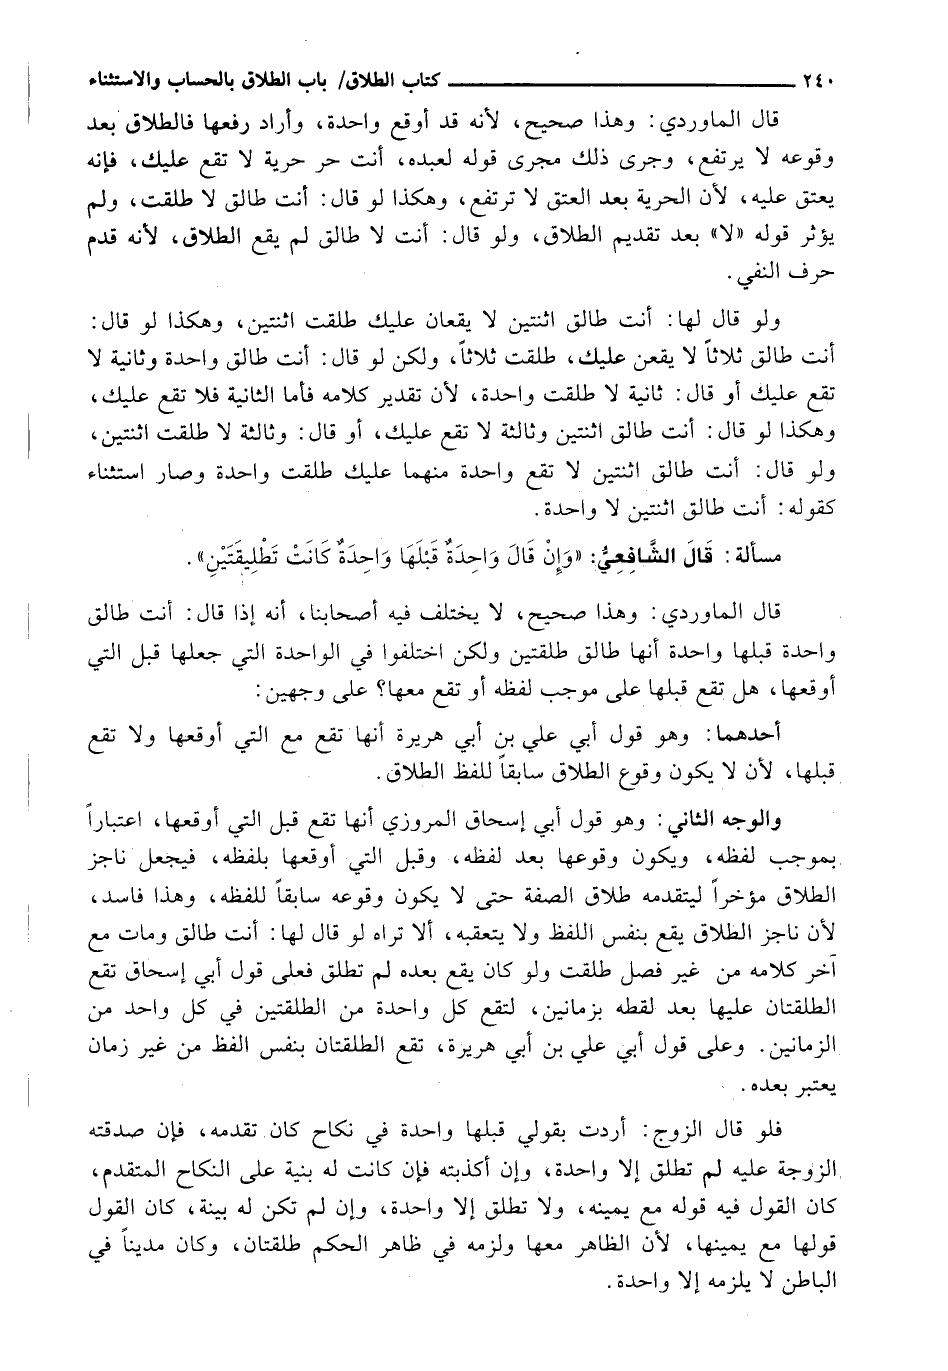 ٢٤٠ ـــــــــــــــــــــــ كتاب الطلاق/ باب الطلاق بالحساب والاستثناء
قال الماوردي: وهذا صحيح، لأنه قد أوقع واحدة، وأراد رفعها فالطلاق بعد
وقوعه لا يرتفع، وجرى ذلك مجرى قوله لعبده، أنت حر حرية لا تقع عليك، فإنه
يعتق عليه، لأن الحرية بعد العتق لا ترتفع، وهكذا لو قال: أنت طالق لا طلقت، ولم
يؤثر قوله «لا» بعد تقديم الطلاق، ولو قال: أنت لا طالق لم يقع الطلاق، لأنه قدم
حرف النفي.
ولو قال لها: أنت طالق اثنتين لا يقعان عليك طلقت اثنتين، وهكذا لو قال:
أنت طالق ثلاثاً لا يقعن عليك، طلقت ثلاثاً، ولكن لو قال: أنت طالق واحدة وثانية لا
تقع عليك أو قال: ثانية لا طلقت واحدة، لأن تقدير كلامه فأما الثانية فلا تقع عليك،
وهكذا لو قال: أنت طالق اثنتين وثالثة لا تقع عليك، أو قال: وثالثة لا طلقت اثنتين،
ولو قال: أنت طالق اثنتين لا تقع واحدة منهما عليك طلقت واحدة وصار استثناء
كقوله: أنت طالق اثنتين لا واحدة.
مسألة: قَالَ الشَّافِعِيُّ: «وَإِنْ قَالَ وَاحِدَةٌ قَبْلَهَا وَاحِدَةٌ كَانَتْ تَطْلِيقَتَيْنِ».
قال الماوردي: وهذا صحيح، لا يختلف فيه أصحابنا، أنه إذا قال: أنت طالق
واحدة قبلها واحدة أنها طالق طلقتين ولكن اختلفوا في الواحدة التي جعلها قبل التي
أوقعها، هل تقع قبلها على موجب لفظه أو تقع معها؟ على وجهين:
أحدهما: وهو قول أبي علي بن أبي هريرة أنها تقع مع التي أوقعها ولا تقع
قبلها، لأن لا يكون وقوع الطلاق سابقاً للفظ الطلاق.
والوجه الثاني: وهو قول أبي إسحاق المروزي أنها تقع قبل التي أوقعها، اعتباراً
بموجب لفظه، ويكون وقوعها بعد لفظه، وقبل التي أوقعها بلفظه، فيجعل ناجز
الطلاق مؤخراً ليتقدمه طلاق الصفة حتى لا يكون وقوعه سابقاً للفظه، وهذا فاسد،
لأن ناجز الطلاق يقع بنفس اللفظ ولا يتعقبه، ألا تراه لو قال لها: أنت طالق ومات مع
آخر كلامه من غير فصل طلقت ولو كان يقع بعده لم تطلق فعلى قول أبي إسحاق تقع
الطلقتان عليها بعد لقطه بزمانين، لتقع كل واحدة من الطلقتين في كل واحد من
الزمانين. وعلى قول أبي علي بن أبي هريرة، تقع الطلقتان بنفس الفظ من غير زمان
يعتبر بعده.
فلو قال الزوج: أردت بقولي قبلها واحدة في نكاح كان تقدمه، فإن صدقته
الزوجة عليه لم تطلق إلا واحدة، وإن أكذبته فإن كانت له بنية على النكاح المتقدم،
كان القول فيه قوله مع يمينه، ولا تطلق إلا واحدة، وإن لم تكن له بينة، كان القول
قولها مع يمينها، لأن الظاهر معها ولزمه في ظاهر الحكم طلقتان، وكان مديناً في
الباطن لا يلزمه إلا واحدة.